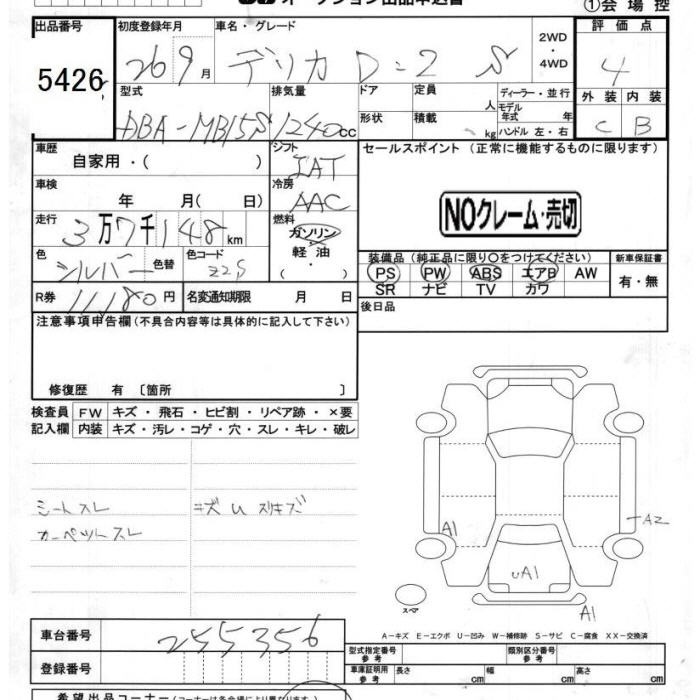 オークション出品申込書 ①会場控
出品番号 初度登録年月 車名・グレード 2WD ・ 4WD 評価点
5426 26 9月 デリカ D:2 S 4
型式 排気量 ドア 定員 人 ディーラー・並行 外装 内装
DBA-MB15S 1240cc 形状 積載 kg モデル年式 年式 ハンドル 左・右 C B
車歴 自家用・( ) シフト IAT セールスポイント (正常に機能するものに限ります)
車検 年 月( 日) 冷房 AAC NOクレーム・売切
走行 3万7千148km 燃料 ガソリン・軽油・( )
色 シルバー 色替 色コード Z2S
装備品 (純正品に限り○をつけてください) 新車保証書
PS PW ABS エアB AW 有・無
SR ナビ TV カワ
R券 11,180円 名変通知期限 月 日 後日品
注意事項申告欄 (不具合内容等は具体的に記入して下さい)
修復歴 有 〔箇所 〕
検査員 FW キズ・飛石・ヒビ割・リペア跡・×要
記入欄 内装 キズ・汚レ・コゲ・穴・スレ・キレ・破レ
シートスレ キズ U スリキズ
カーペットスレ
A1 A2
UA1
スペア A1
A-キズ E-エクボ U-凹み W-補修跡 S-サビ C-腐食 XX-交換済
車台番号 255356 型式指定番号 参考 類別区分番号 参考
登録番号 車庫証明用 参考 長さ cm 幅 cm 高さ cm
希望出品コーナー